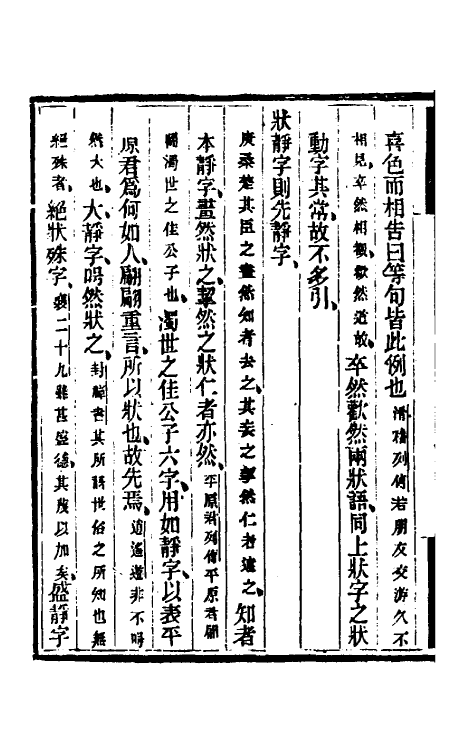 喜色而相告曰等句皆此例也滑稽列傳若朋友交游久不
相見卒然相覩歡然道故卒然歡然兩狀語同上狀字之狀
動字其常故不多引
狀靜字則先靜字
庚桑楚其臣之畫然知者去之其妾之挈然仁者遠之知者
本靜字畫然狀之挈然之狀仁者亦然平原君列傳平原君翩
翩濁世之佳公子也濁世之佳公子六字用如靜字以表平
原君爲何如人翩翩重言所以狀也故先焉逍遙遊非不呺
然大也大靜字呺然狀之封禪書其所謂世俗之所知也無
絕殊者絕狀殊字襄二十九雖甚盛德其蔑以加矣盛靜字